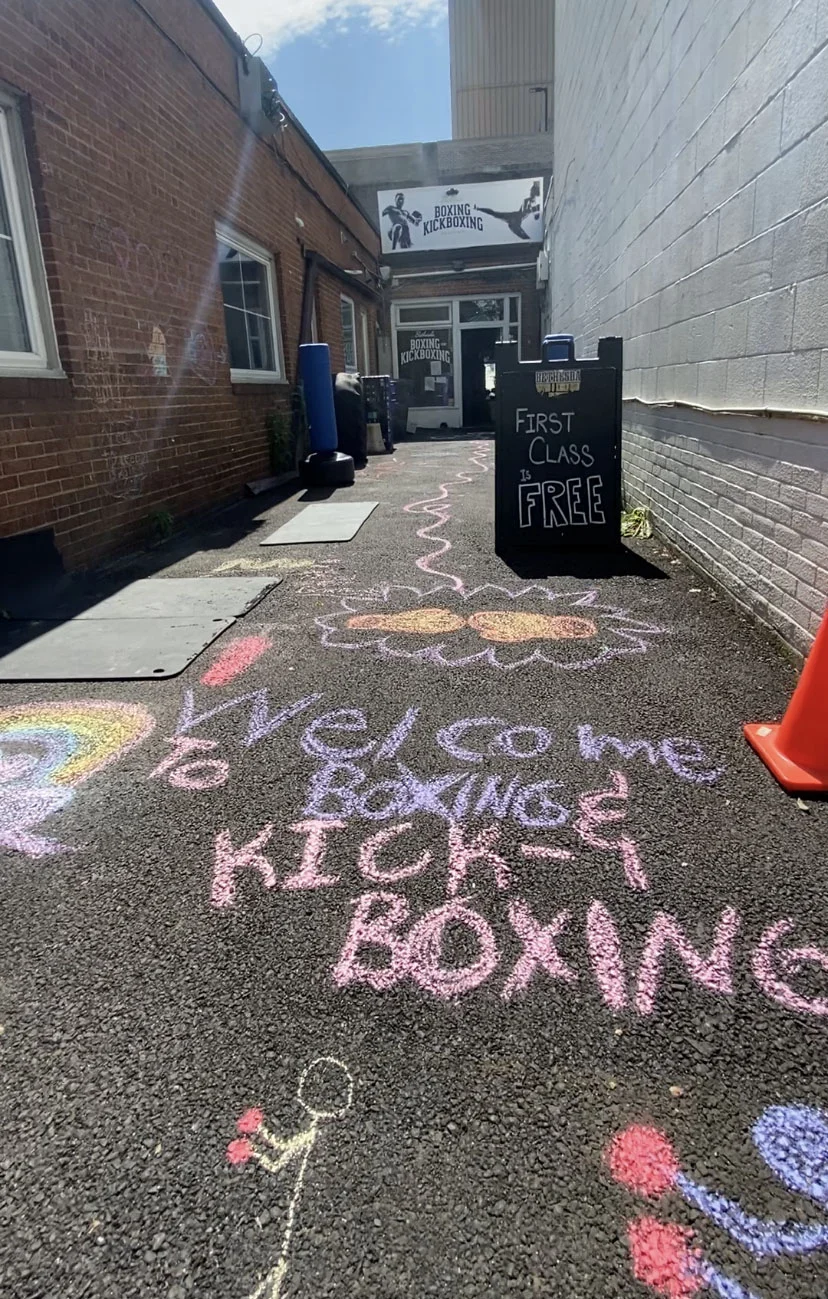 BOXING
KICKBOXING
BOXING
KICKBOXING
BETHESDA
FIRST
CLASS
Is
FREE
Welcome
TO
BOXING &
KICK-
BOXING